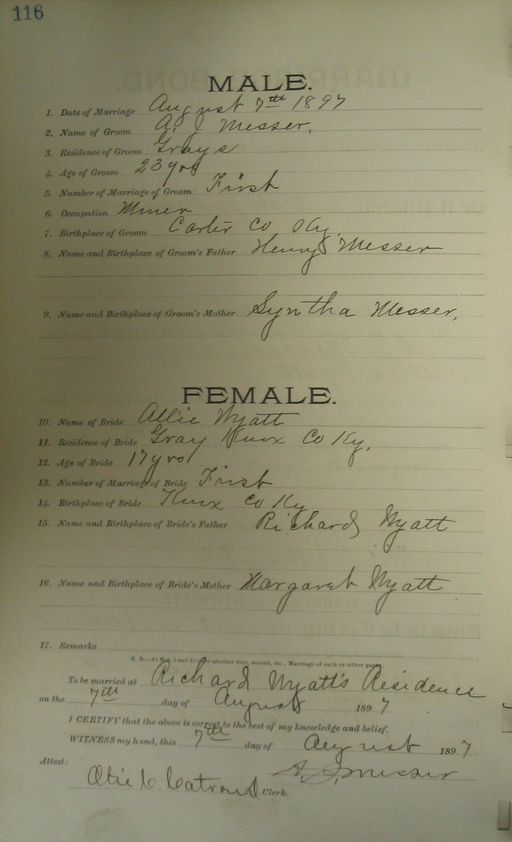 116
MALE.
1. Date of Marriage August 7th 1897
2. Name of Groom A. J. Messer,
3. Residence of Groom Grays
4. Age of Groom 23 yrs
5. Number of Marriage of Groom First
6. Occupation Miner
7. Birthplace of Groom Carter Co Ky.
8. Name and Birthplace of Groom's Father Henry Messer
9. Name and Birthplace of Groom's Mother Syntha Messer,
FEMALE.
10. Name of Bride Allie Wyatt
11. Residence of Bride Gray Knox Co Ky,
12. Age of Bride 17 yrs
13. Number of Marriage of Bride First
14. Birthplace of Bride Knox Co Ky
15. Name and Birthplace of Bride's Father Richard Wyatt
16. Name and Birthplace of Bride's Mother Margaret Wyatt
17. Remarks
N. B.—At Nos. 5 and 13 state whether first, second, etc., Marriage of each or either party.
To be married at Richard Wyatt's Residence
on the 7th day of August 1897
I CERTIFY that the above is correct to the best of my knowledge and belief.
WITNESS my hand, this 7th day of August 1897
Attest: A. J. Messer
Clerk.